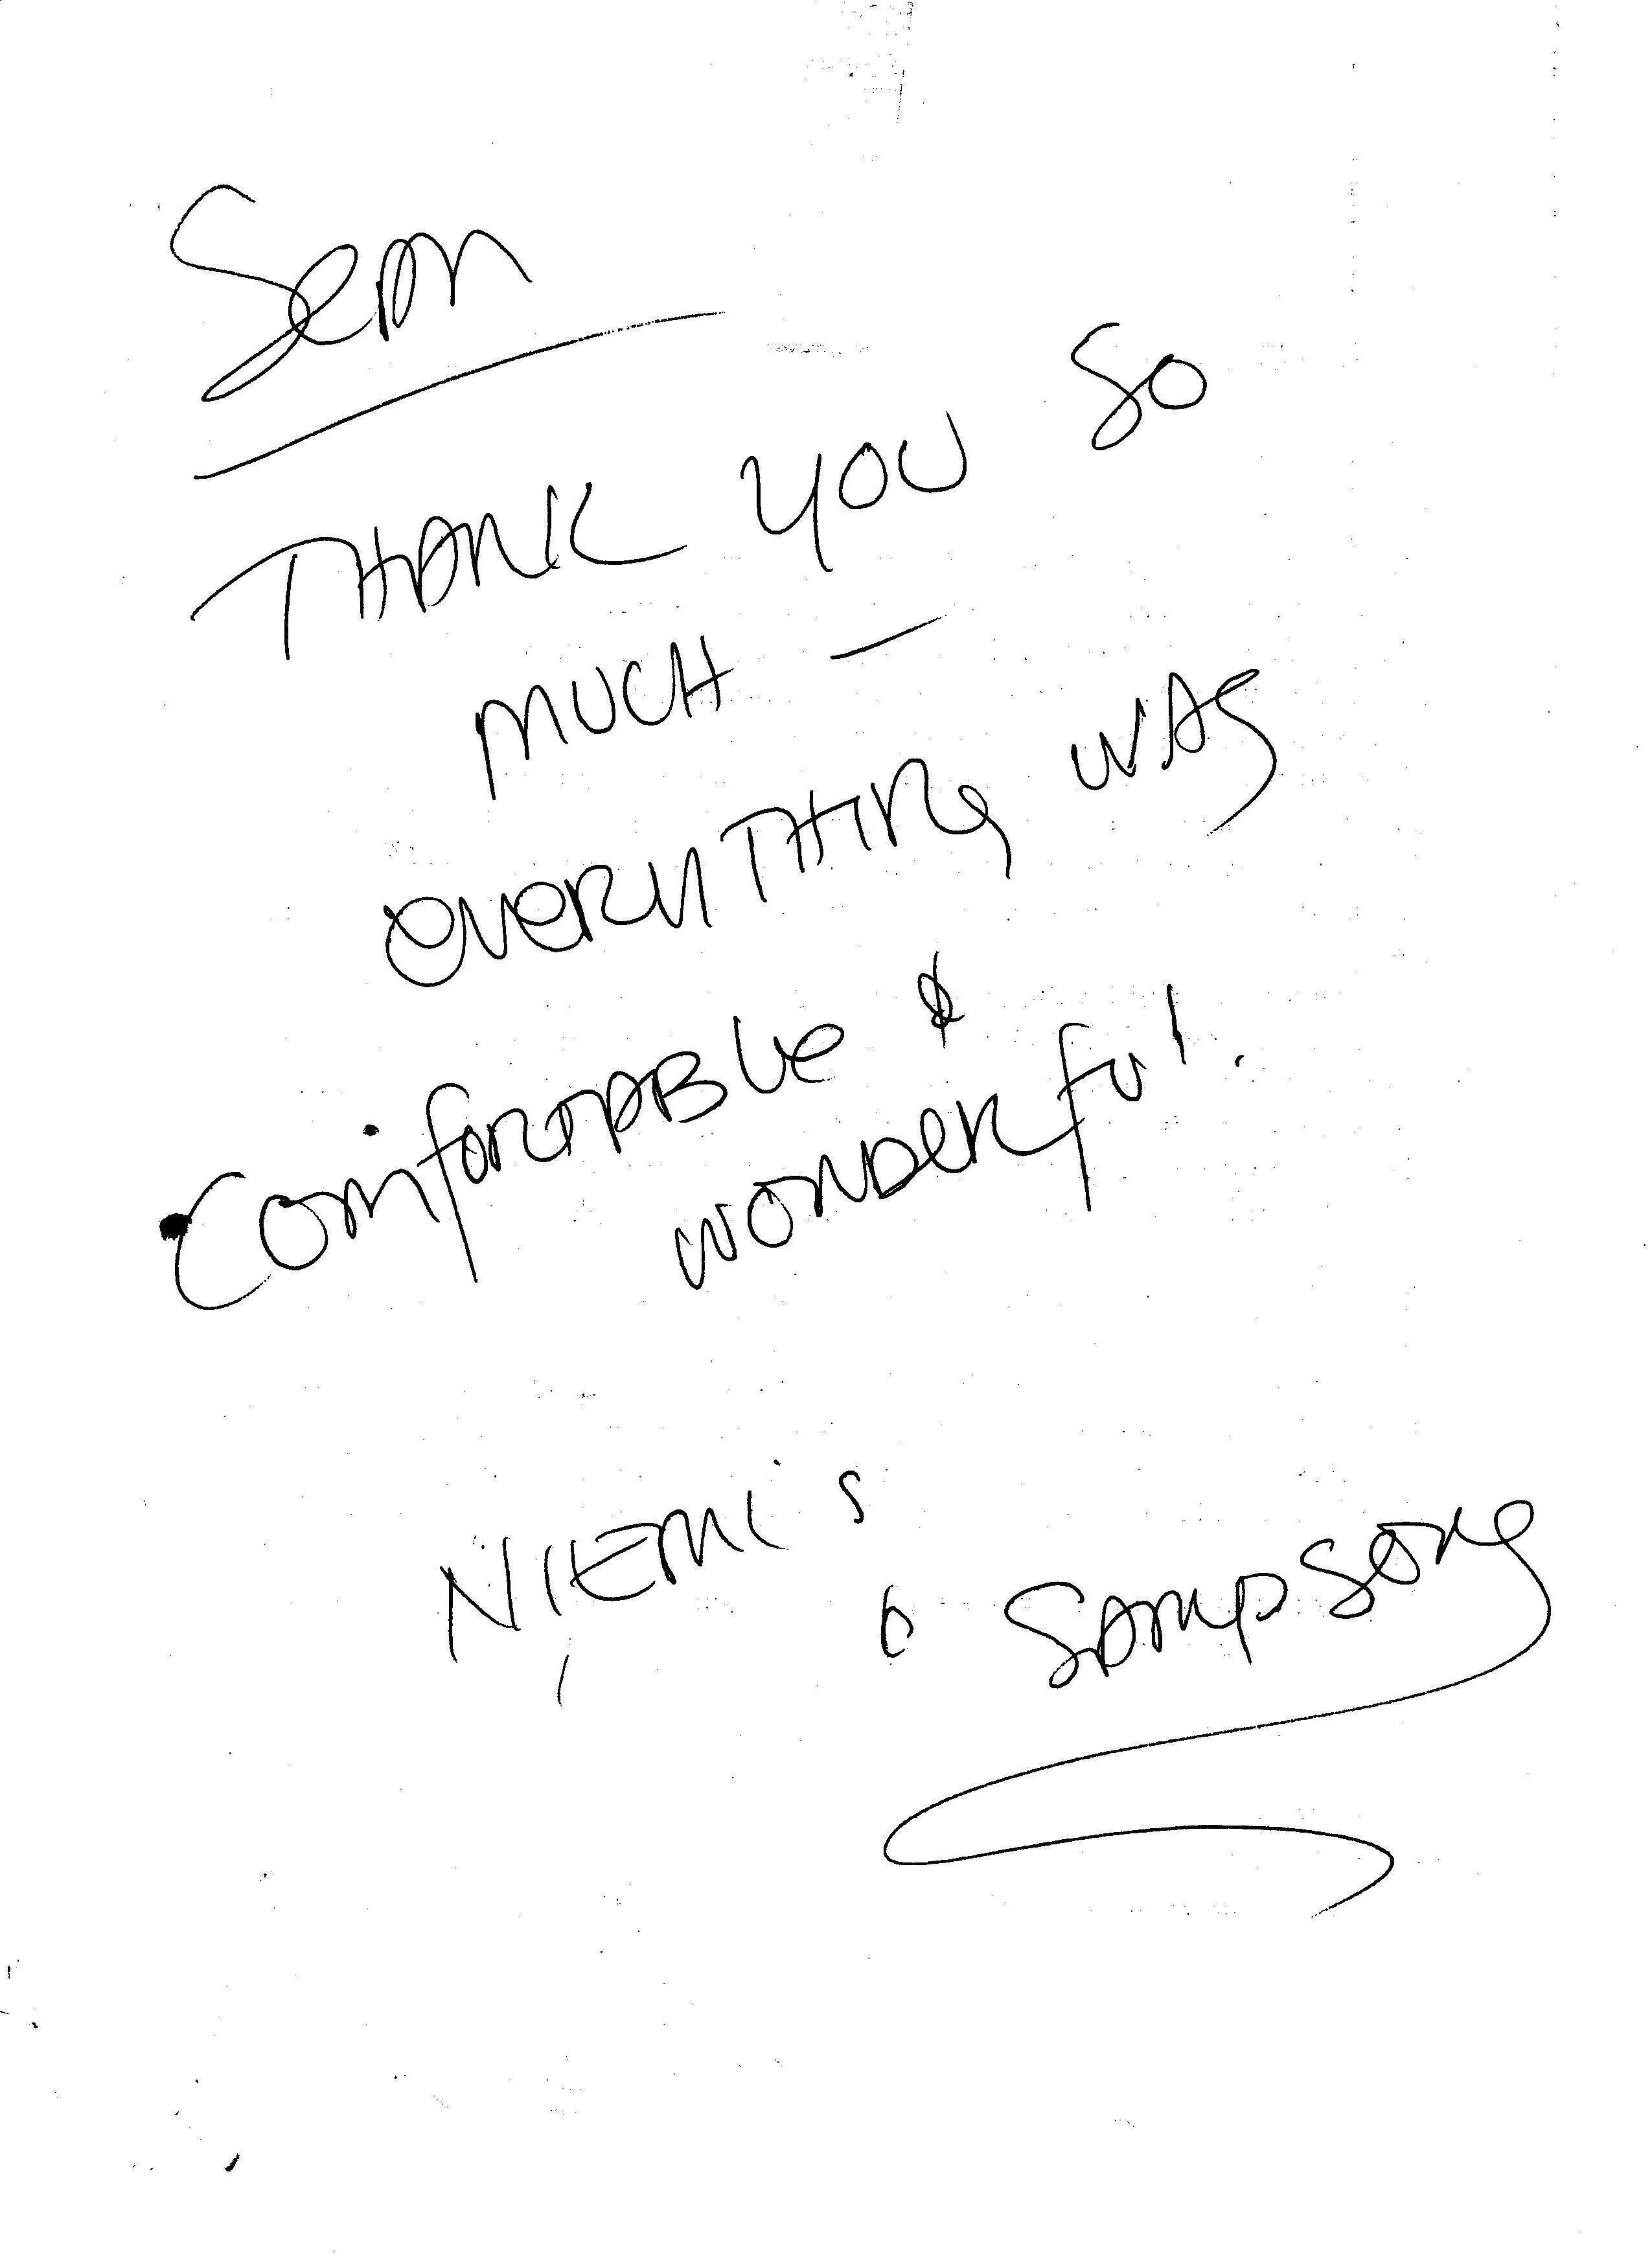 Sean
THANK YOU SO
MUCH —
EVERYTHING WAS
COMFORTABLE &
WONDERFUL.
NIEMI'S
& SAMPSONS